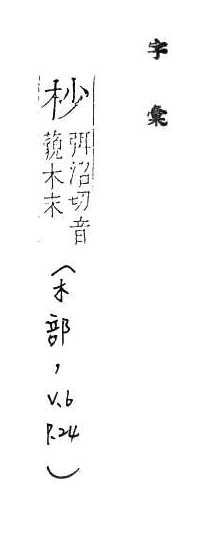 字彙
杪 弭沼切音
藐木末
(木部,
V.6
P.24)